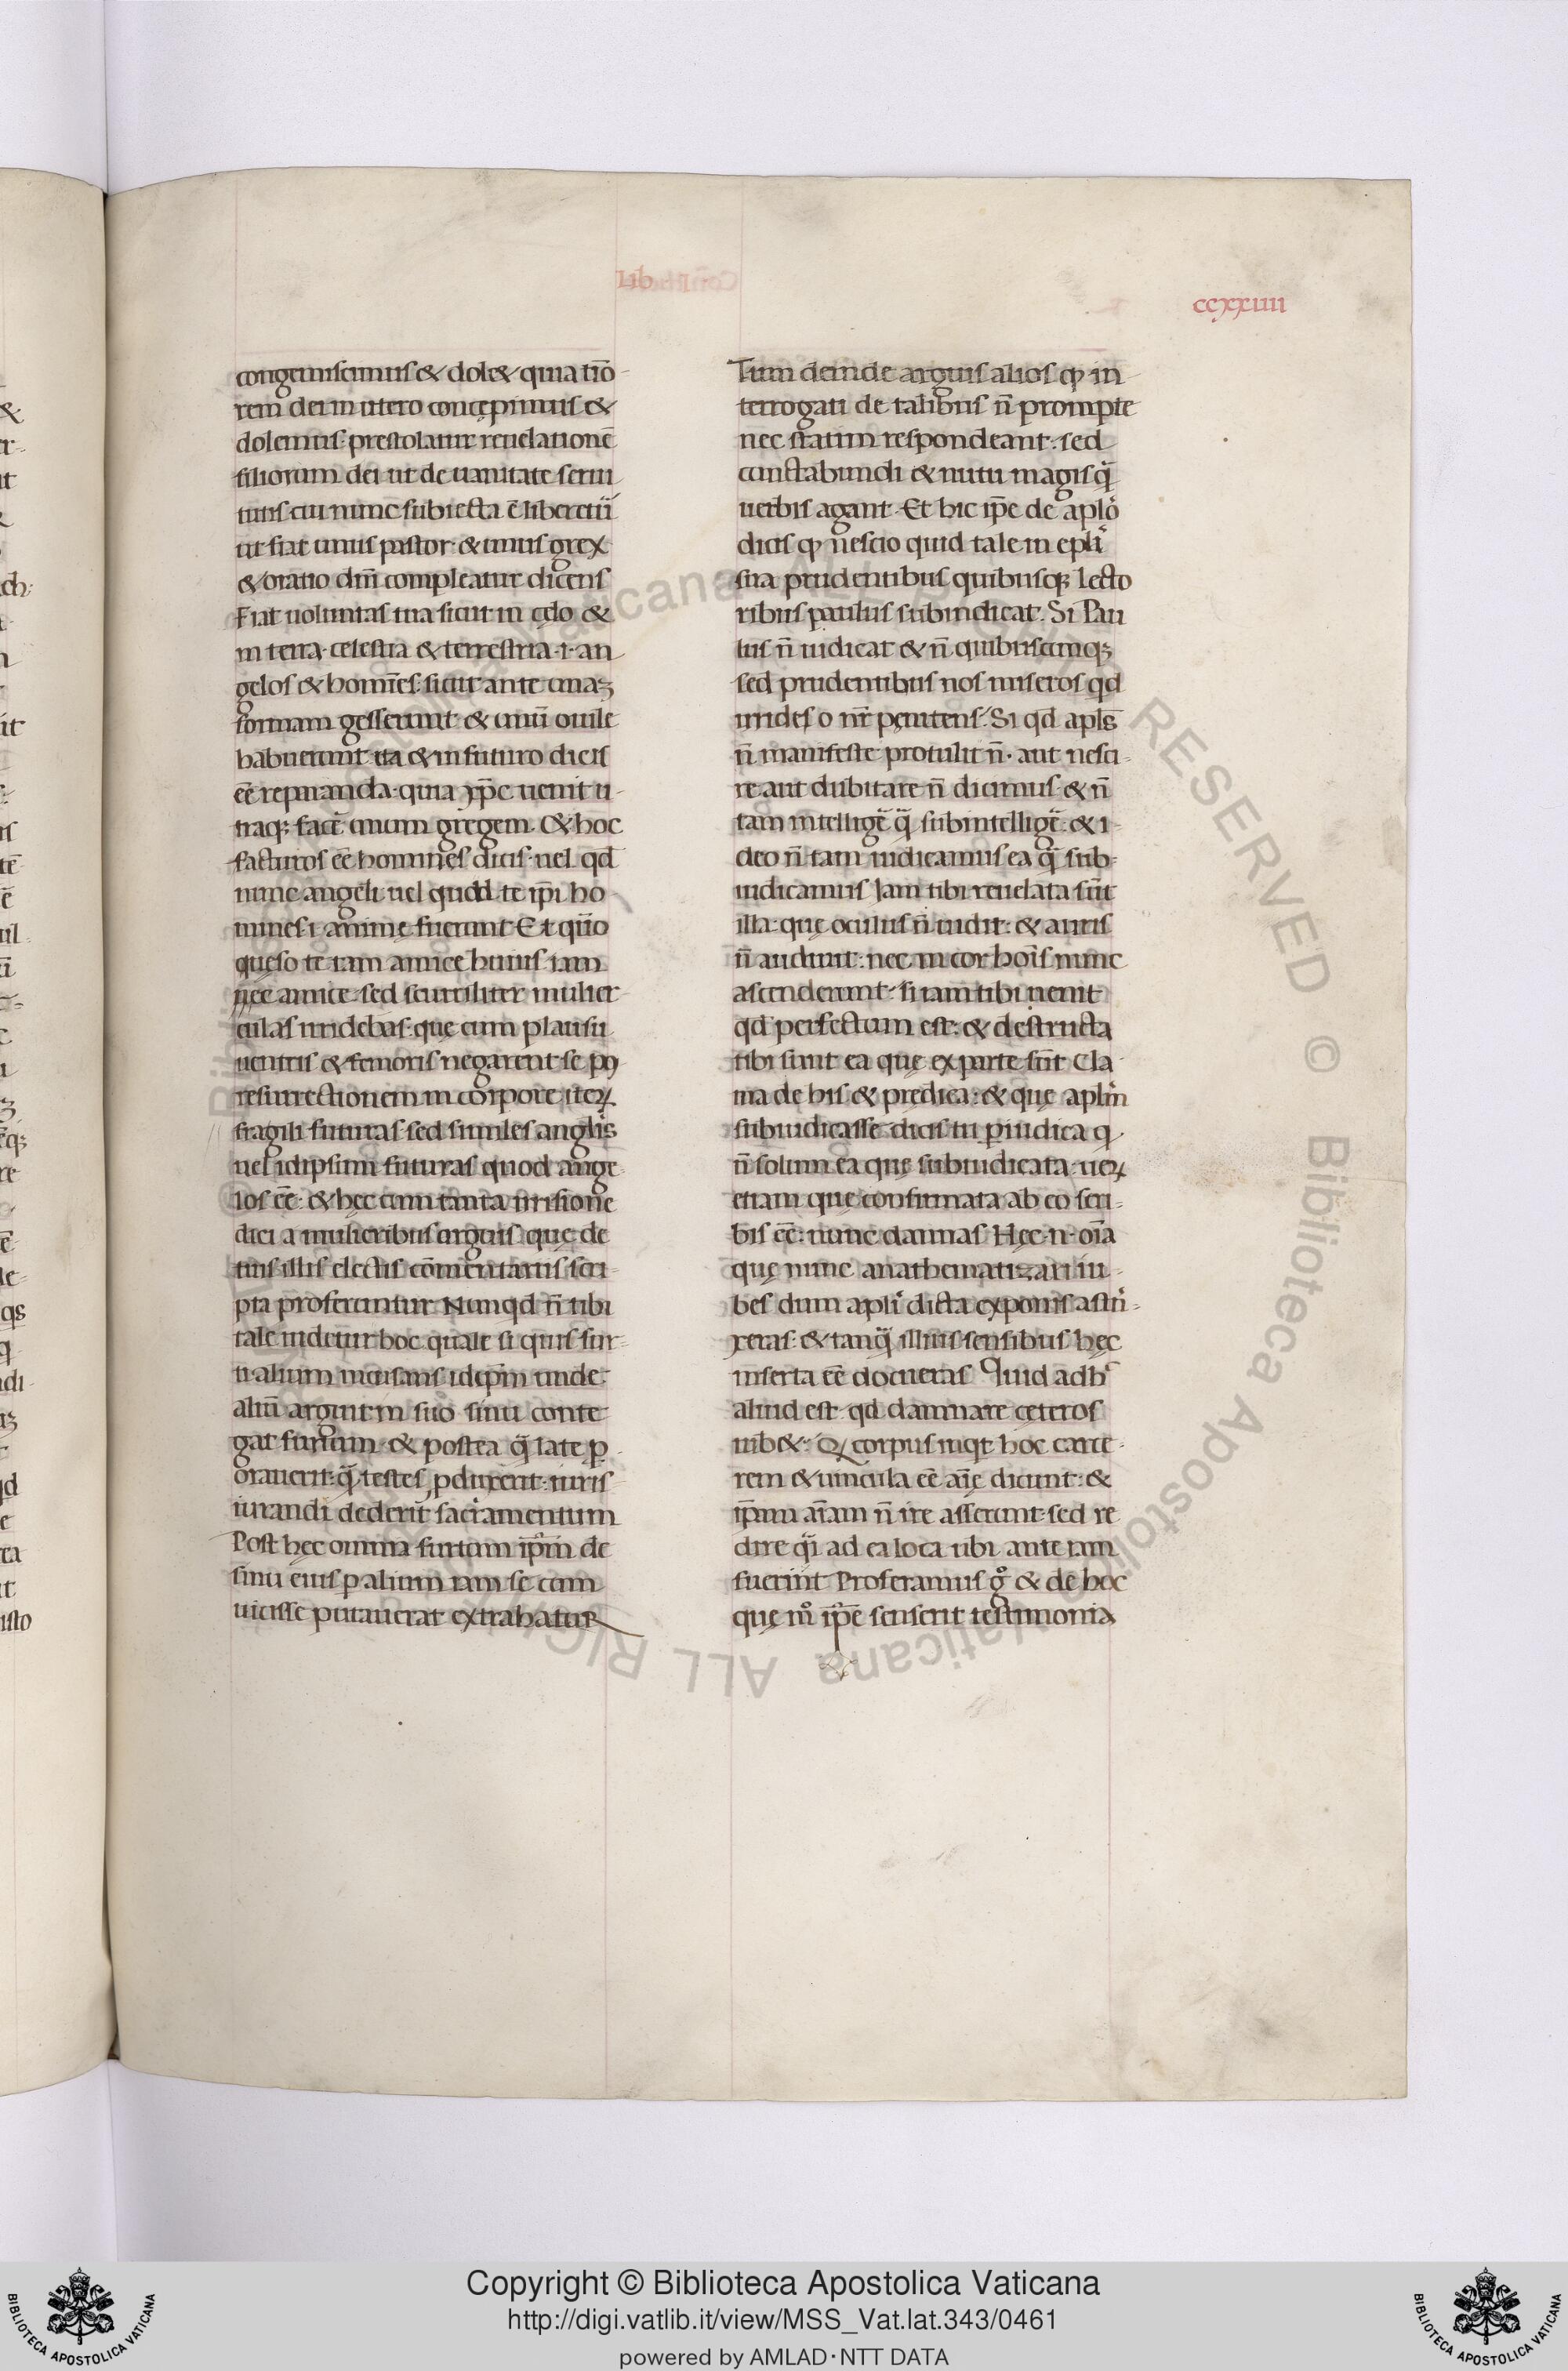 Lib
ccxxiiii
congemiscimus & dol& quia timo
rem dei in utero concępimus &
dolemus. prestolatur reuelationē
filiorum dei ut de uanitate serui
tutis cui nunc subiecta ē liberetur
ut fiat unus pastor & unus grex
& oratio dn̄i compleatur dicens
Fiat uoluntas tua sicut in cęlo &
in terra. celestia & terrestria .i. an
gelos & homīes. sicut ante unaꝫ
formam gesserunt & unū ouile
habuerunt. ita & in futuro dicis
eē reparanda. quia xp̄c uenit u
traqꝫ facē unum gregem. & hoc
facturos eē homines dicis. uel qd̄
nunc angeli uel quod te ip̄i ho
mines .i. animę fuerunt Et quō
quęso te tam amice huius iam
nec amice. sed scurriliter mulier
culas irridebas. quę cum plausu
uentris & femoris negarent se pꝰ
resurrectionem in corpore iterꝝ
fragili futuras. sed similes angłis
uel idipsum futuras quod ange
los eē. & hęc cum tanta irrisione
dici a mulieribus arguis. quę de
tuis illis electis cōmentariis scri
pta proferuntur Nunqd n̄ tibi
tale uidetur hoc quale si quis fur
ti alium incusans idip̄m unde
aliū arguit in suo sinu conte
gat furtum. & postea q̄ late ꝑ
orauerit. q̄ testes ꝓduxerit. iuris
iurandi dederit sacramentum
Post hęc omnia furtum ip̄m de
sinu eius ꝑ alium iam se cum
uicisse putauerat extrahatur
Tum deinde arguis alios ꝙ in
terrogati de talibus n̄ prompte
nec statim respondeant. sed
cunctabundi & nutu magis q̄
uerbis agant. Et hic ip̄e de aplō
dicis ꝙ nescio quid tale in epłi
sua prudentibus quibusqꝫ lecto
ribus paulus subindicat. Si Pau
lus n̄ iudicat & n̄ quibuscunqꝫ
sed prudentibus nos miseros qd
irrides o nr̄ pęnitens. Si qd apłs
n̄ manifeste protulit n̄. aut nesci
re aut dubitare n̄ dicimus. & n̄
tam intelligē q̄ subintelligē. & i
deo n̄ tam iudicamus ea q̄ sub
iudicamus Iam tibi reuelata sūt
illa. quę oculus n̄ uidit. & auris
n̄ audiuit. nec in cor hoīs nunc
ascenderunt. si iam tibi uenit
qd perfectum est. & destructa
tibi sunt ea quę ex parte sūt Cla
ma de his & prędica. & quę apłm
subiudicasse dicis tu ꝑiudica q̄
n̄ solum ea quę subiudicata. uerꝝ
etiam quę confirmata ab eo scri
bis eē. nunc damnas Hęc .n. oīa
quę nunc anathematizari iu
bes dum apłi dicta exponis astri
xeras. & tanq̄ illius sensibus hęc
inserta eē docueras Quid adhc
aliud est qd damnare ceteros
iub&. Qꝫ corpus inqt hoc carce
rem & uincula eē aīę dicunt. &
ip̄am aīam n̄ ire asserunt. sed re
dire q̄i ad ea loca ubi ante iam
fuerint Proferamus g° & de hoc
quę m° ip̄e senserit testimonia
Copyright © Biblioteca Apostolica Vaticana
http://digi.vatlib.it/view/MSS_Vat.lat.343/0461
powered by AMLAD·NTT DATA
BIBLIOTECA APOSTOLICA VATICANA
BIBLIOTECA APOSTOLICA VATICANA
© Biblioteca Apostolica Vaticana ALL RIGHTS RESERVED